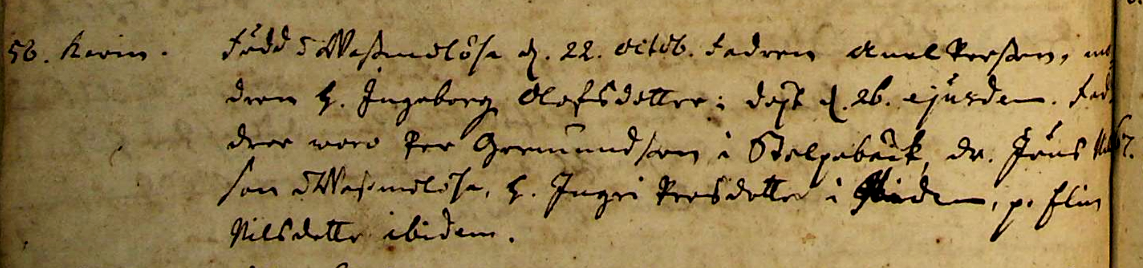 56. Karin. Född i Wassmolösa d. 22. octob. Fadren Axel Persson, mo
dren h. Ingeborg Olofsdotter; döpt d. 26. ejusdem. Fad
drar woro Per Germundsson i Stolpabäck, dr. Jöns Nil
son i Wassmolösa, h. Ingri Persdotter i p. Elin
Nilsdotter ibidem.